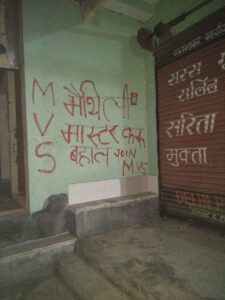 M
V
S
मैथिली
मास्टर करू
बहाल JOIN
MVS
सरस
सलिल
सरिता
मुक्ता
DELHI P